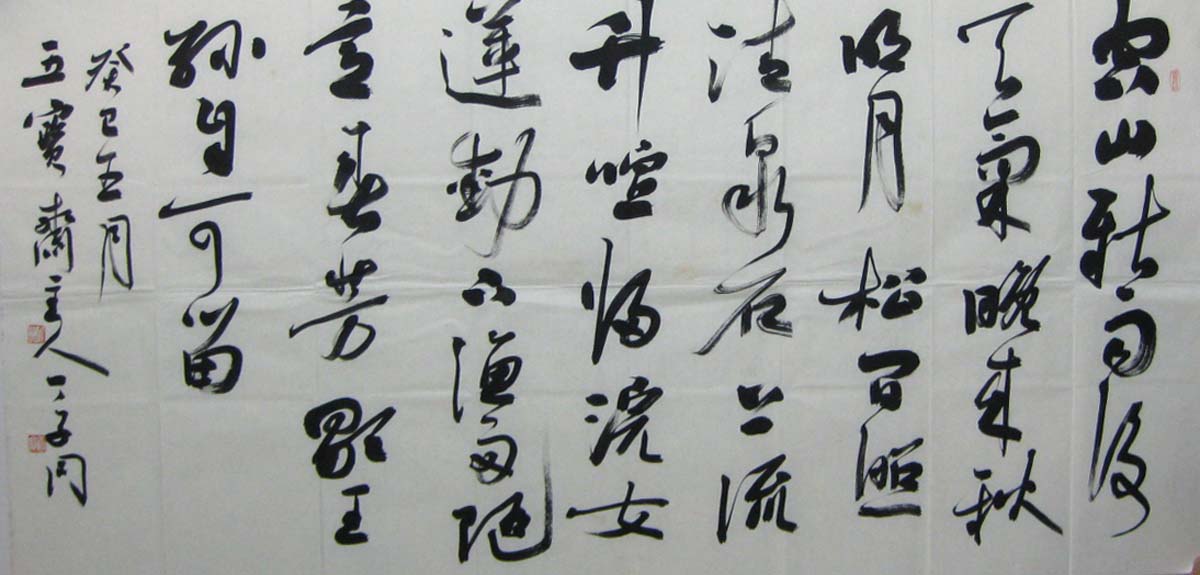 空山新雨後
天氣晚來秋
明月松間照
清泉石上流
竹喧歸浣女
蓮動下漁舟隨
意春芳歇王
孫自可留
癸巳五月
五寶齋主人丁子同